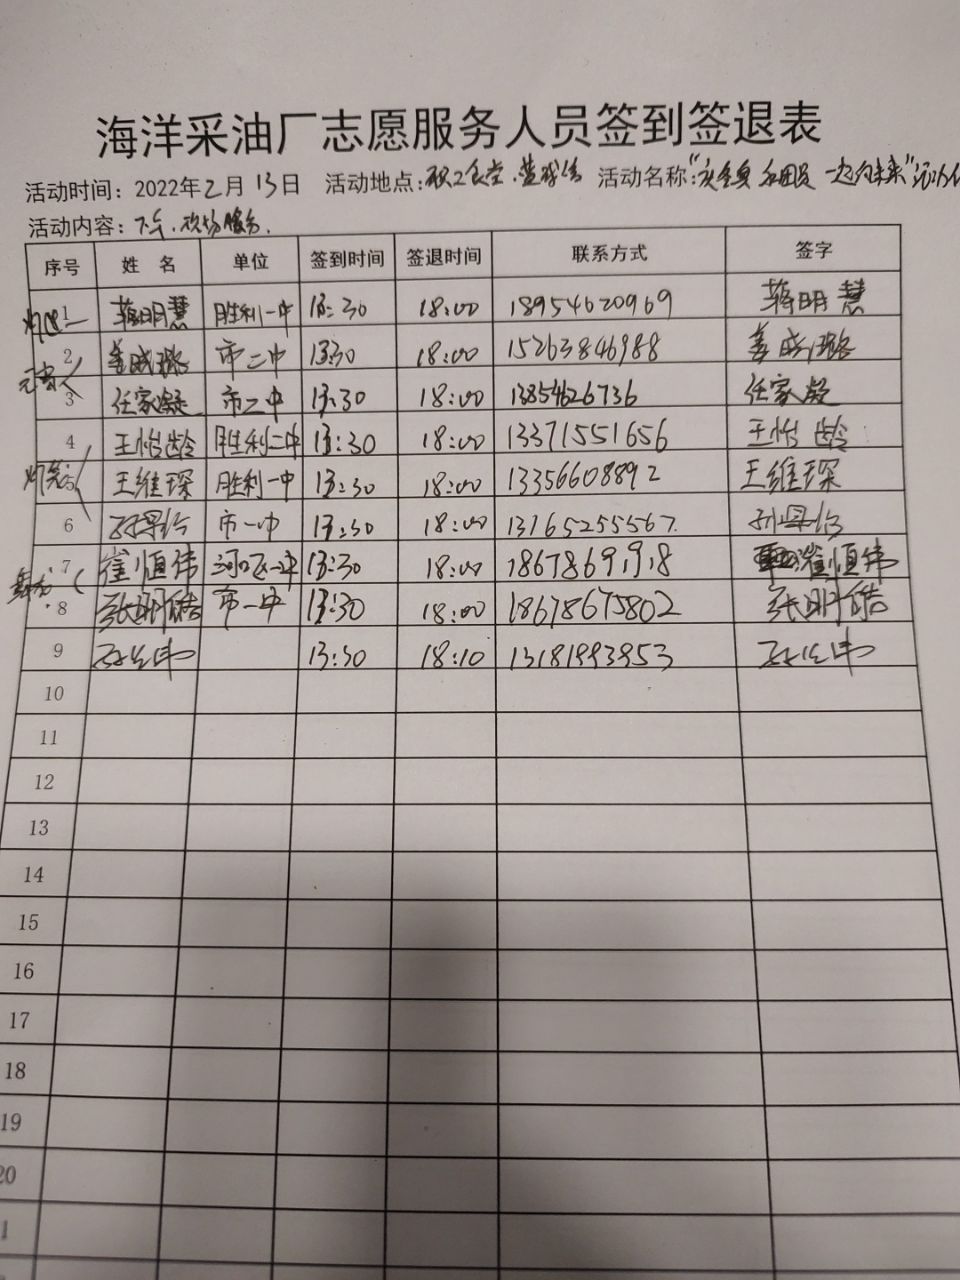 海洋采油厂志愿服务人员签到签退表
活动时间：2022年2月13日 活动地点：职工食堂、篮球馆 活动名称：
活动内容： 服务.
序号 姓名 单位 签到时间 签退时间 联系方式 签字
1 蒋明慧 胜利一中 13:30 18:00 18954620969 蒋明慧
2 姜成璐 市二中 13:30 18:00 15263846988 姜成璐
3 任家凝 市二中 13:30 18:00 13854626736 任家凝
4 王怡龄 胜利二中 13:30 18:00 13371551656 王怡龄
5 王维琛 胜利一中 13:30 18:00 13356608892 王维琛
6 市一中 13:30 18:00 13165255567
7 崔恒伟 河口一中 13:30 18:00 18678691918 崔恒伟
8 市一中 13:30 18:00 18678675802
9 13:30 18:10 13181993953
10
11
12
13
14
15
16
17
18
19
20
1